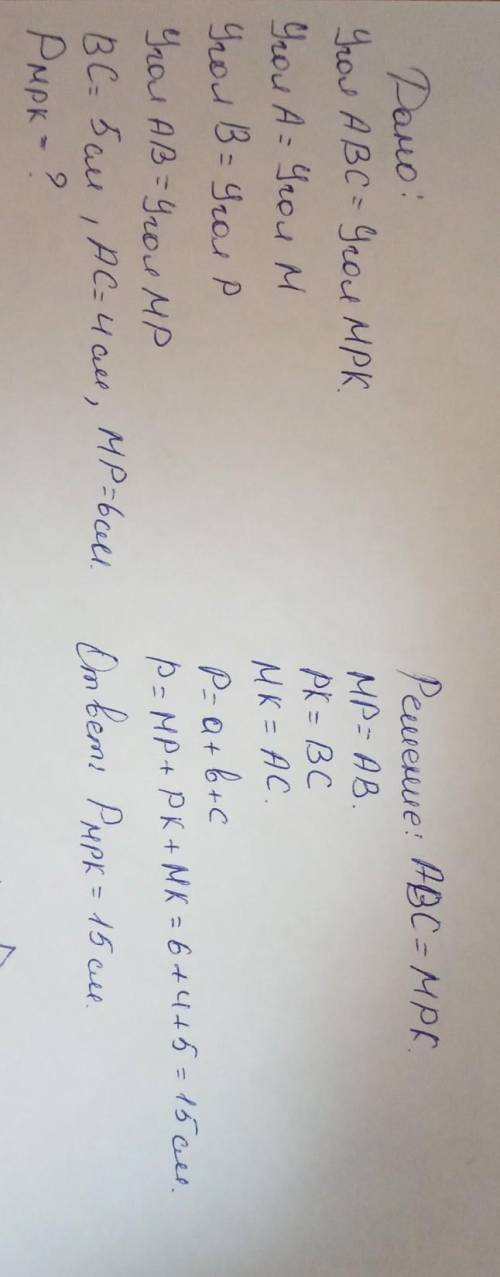 Дано:
Угол ABC = Угол MPK.
Угол A = Угол M
Угол B = Угол P
Угол AB = Угол MP
BC = 5 см, AC = 4 см, MP = 6 см.
PMPK = ?
Решение: ABC = MPK.
MP = AB.
PK = BC
MK = AC.
P = a + b + c
P = MP + PK + MK = 6 + 4 + 5 = 15 см.
Ответ: PMPK = 15 см.